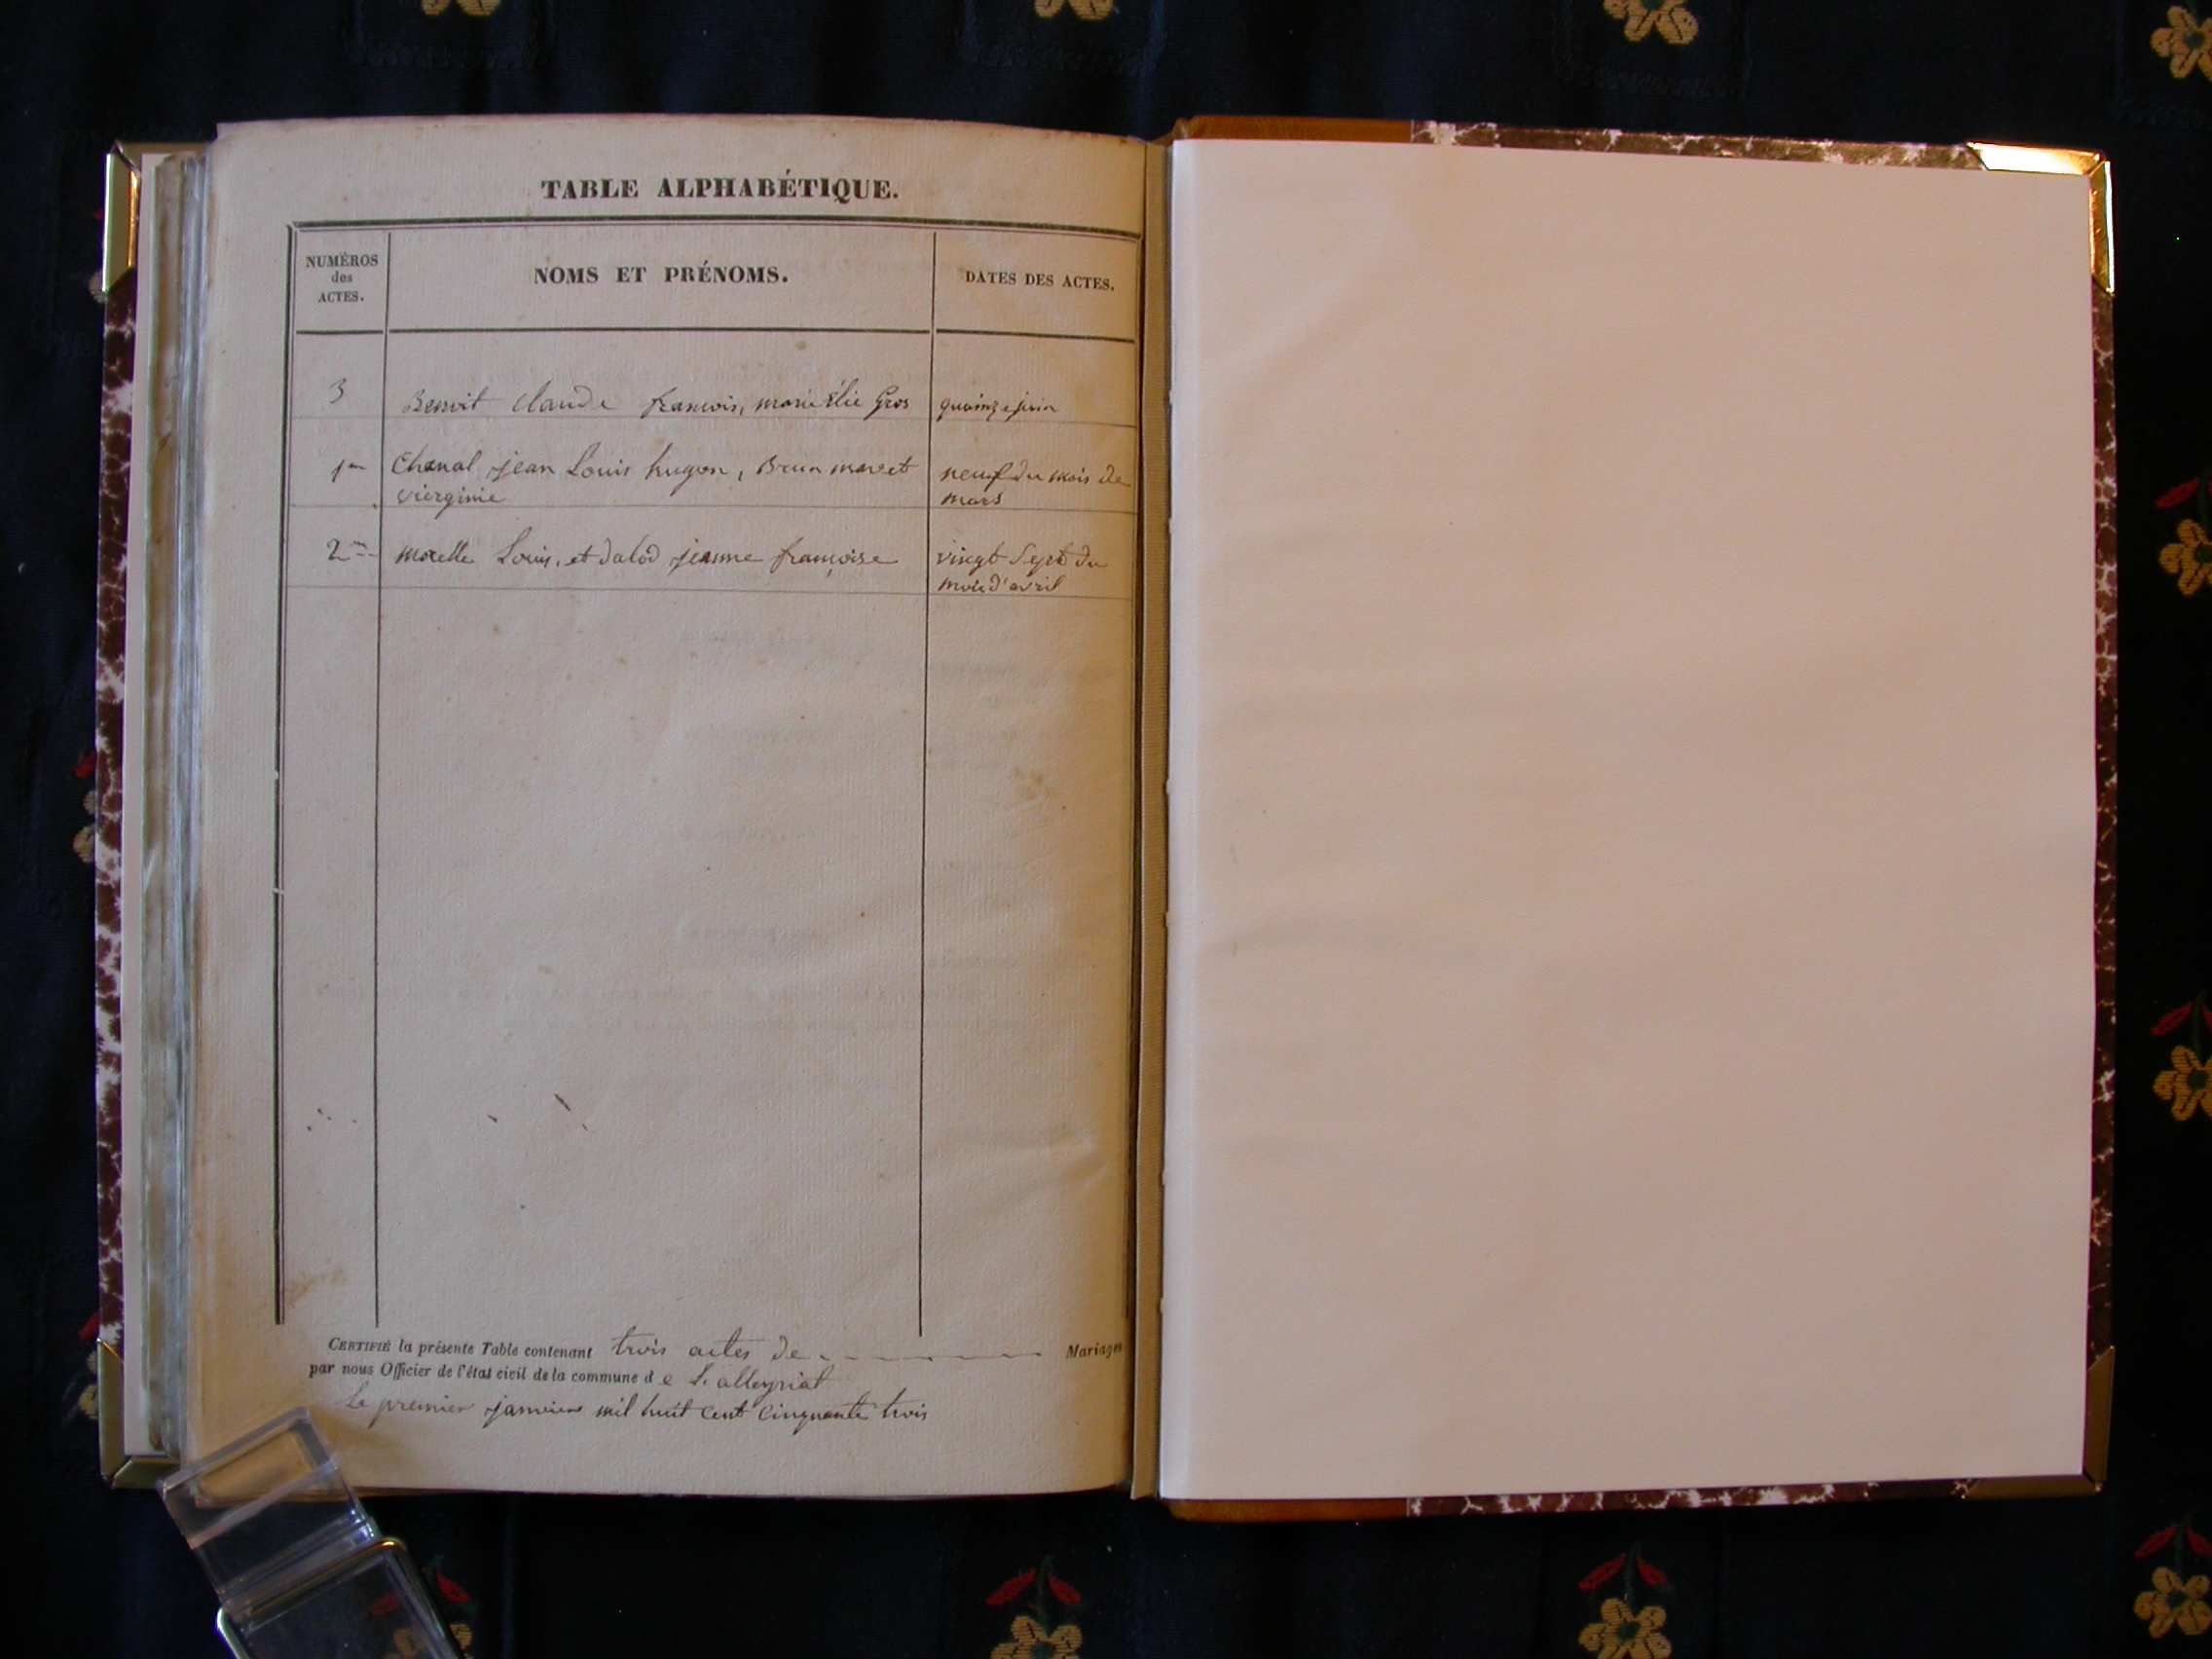 TABLE ALPHABÉTIQUE.
NUMÉROS
des
ACTES.
NOMS ET PRÉNOMS.
DATES DES ACTES.
3 Benoit claude francois, marie Elie Gros quainze juin
1er Chanal jean Louis hugon, Brun maret neuf du mois de
vierginie mars
2me morelle Louis, et dalod jeanne françoise vingt Sept du
mois d'avril
CERTIFIÉ la présente Table contenant trois actes de Mariages
par nous Officier de l'état civil de la commune de St alleyriat
Le premier janvier mil huit cent cinquante trois